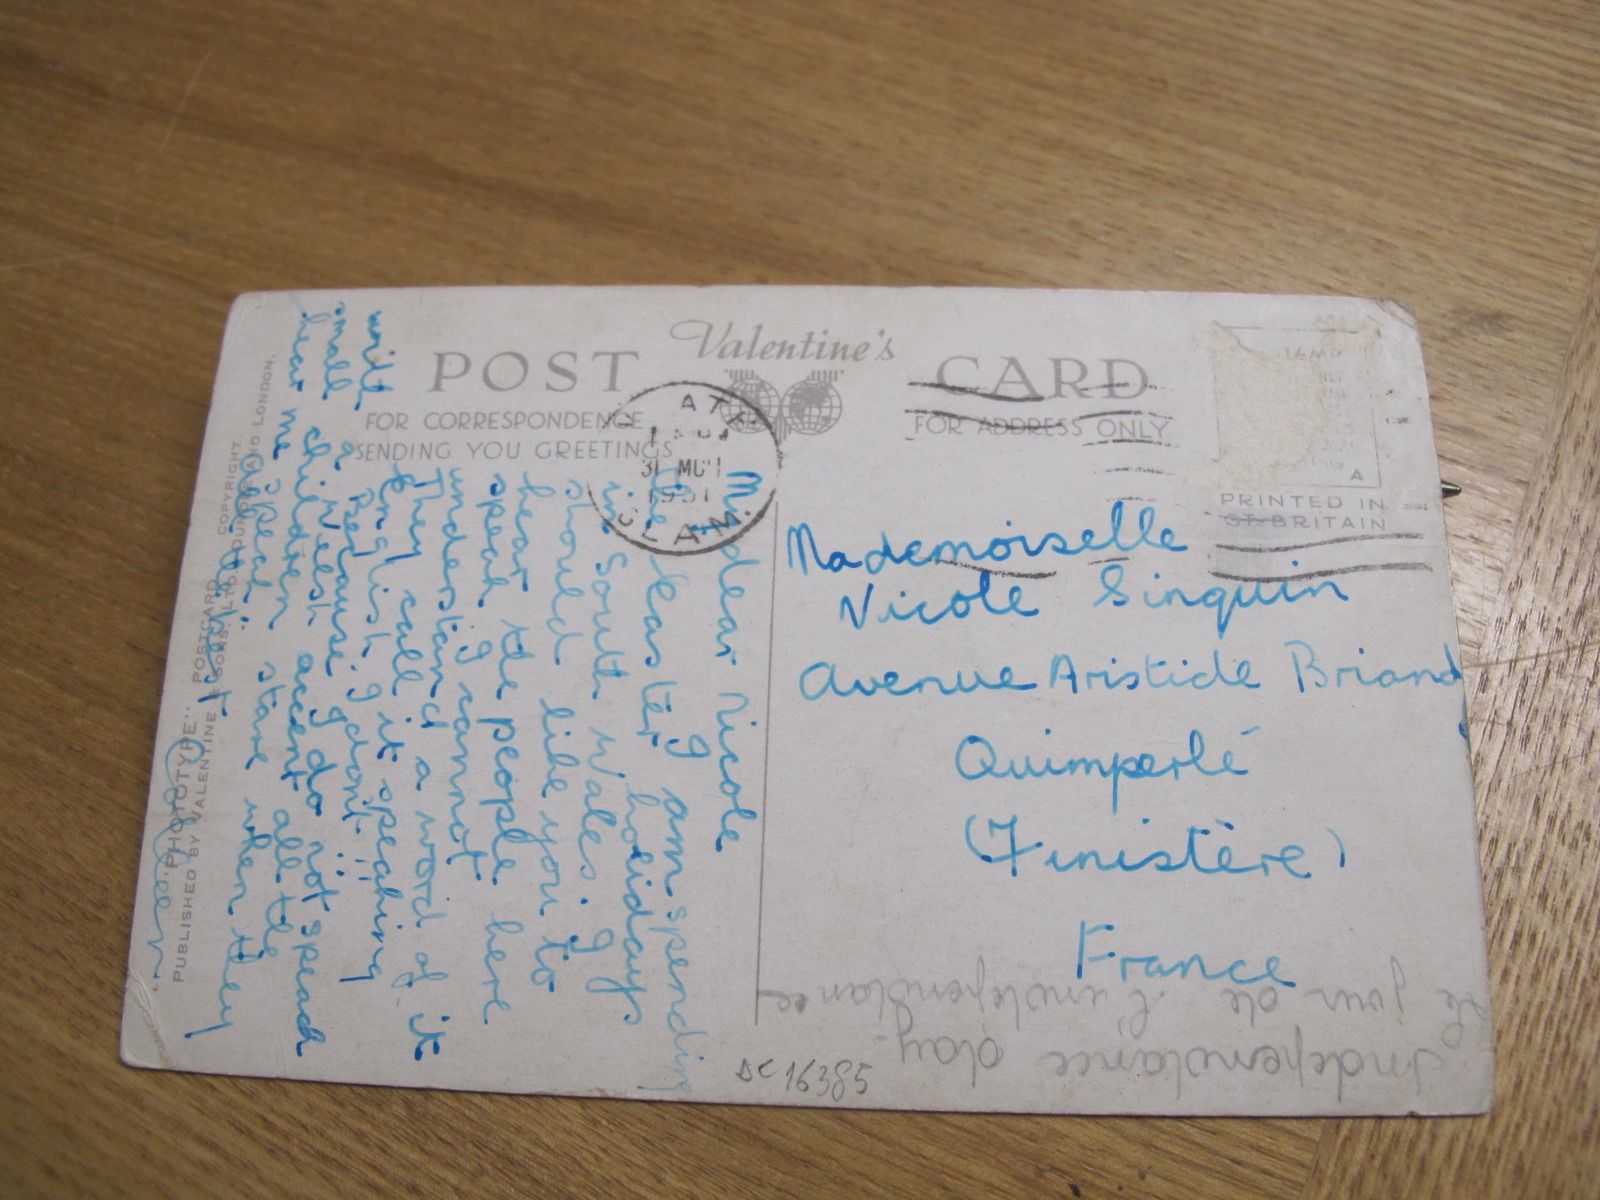 Valentine's
POST CARD
FOR CORRESPONDENCE
SENDING YOU GREETINGS
FOR ADDRESS ONLY
A
PRINTED IN
GT. BRITAIN
1951
GLAM.
My dear Nicole
I am spending
the Easter holidays
in South Wales. I
should like you to
hear the people here
speak I cannot
understand a word of it
They call it speaking
English, I don't!!
Because I do not speak
a Welsh accent all the
small children stare when they
hear me speak.
write
all the best.
Mademoiselle
Nicole Sinquin
Avenue Aristide Briand
Quimperlé
(Finistère)
France
Independance day
le jour de l'independance
DC 16385
"PHOTOTYPE" POSTCARD COPYRIGHT
PUBLISHED BY VALENTINE & SONS, LTD. DUNDEE AND LONDON.